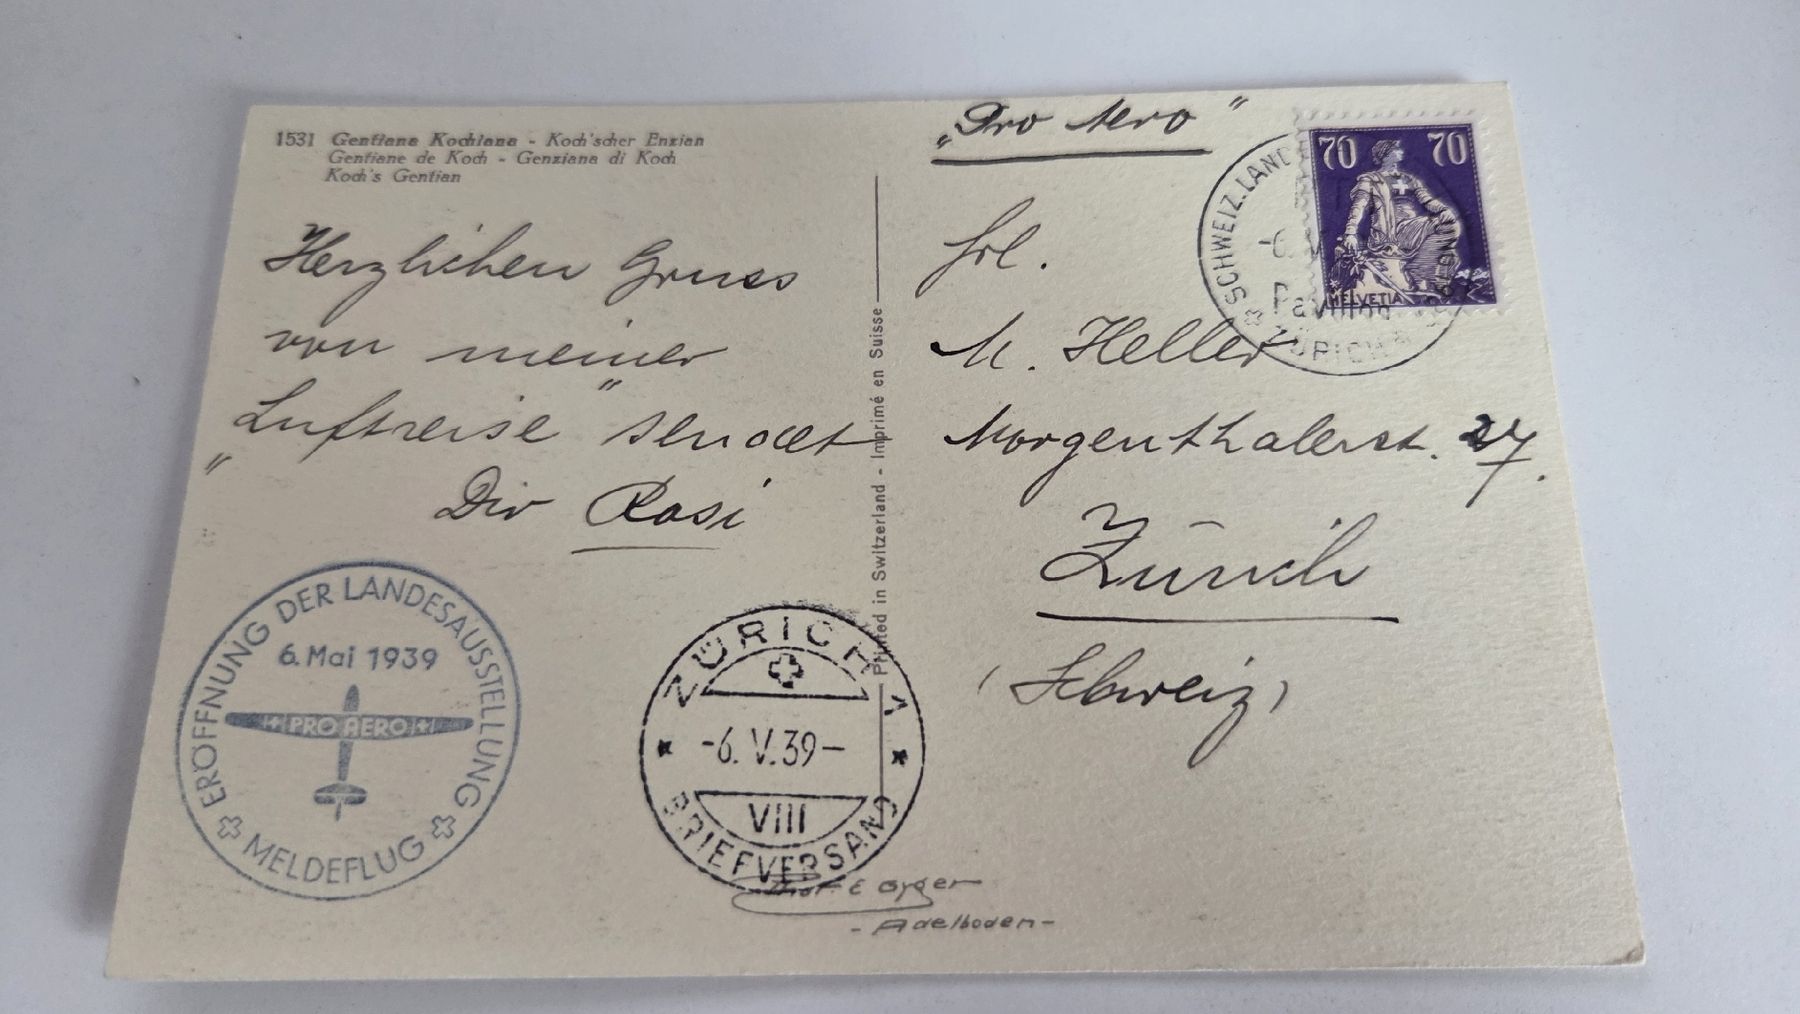 1531 Gentiana Kochiana - Koch'scher Enzian
Gentiane de Koch - Genziana di Koch
Koch's Gentian
Herzlichen Gruss
von meiner
„Luftreise" sendet
Dir Rosi
ERÖFFNUNG DER LANDESAUSSTELLUNG
6. Mai 1939
PRO AERO
MELDEFLUG
ZÜRICH 1
-6.V.39-
VIII
BRIEFVERSAND
E Gyger
- Adelboden -
Printed in Switzerland - Imprimé en Suisse
„Pro Aero"
70 70
HELVETIA
SCHWEIZ. LAND
Pavillon
ZÜRICH
Frl.
M. Heller
Morgenthalerst. 27.
Zürich
(Schweiz)